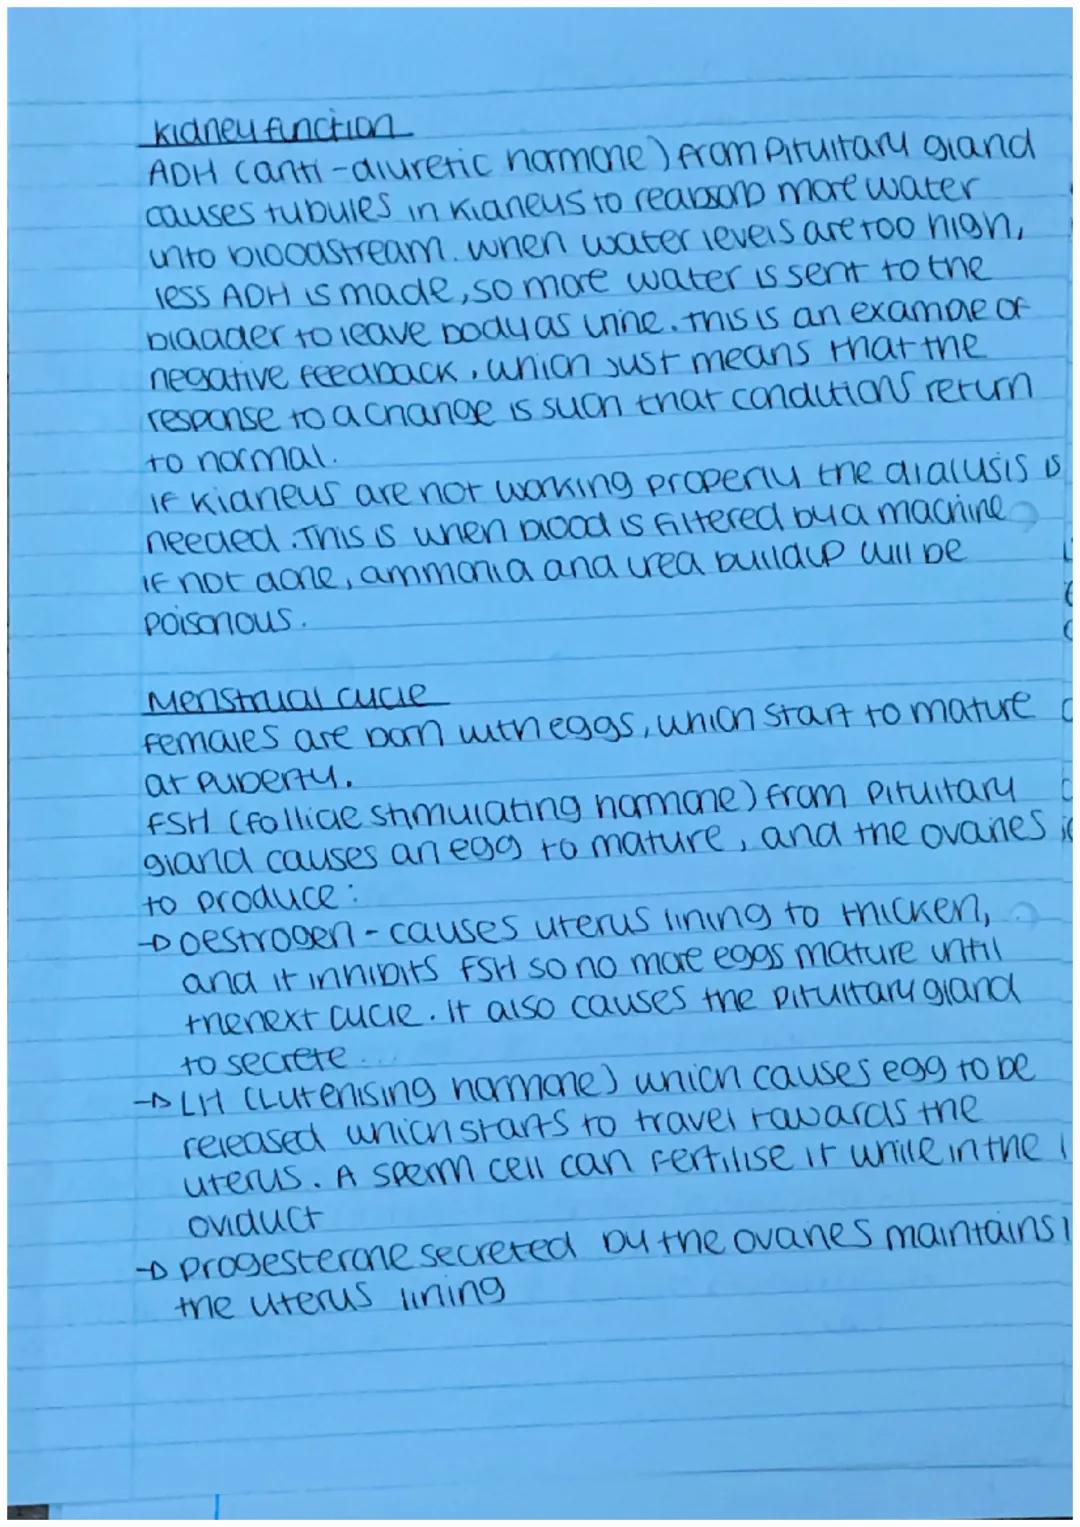 Kidney function
ADH (anti-diuretic hormone) from Pituitary gland
causes tubules in kidneys to reabsorb more water
into bloodstream. When water levels are too high,
less ADH is made, so more water is sent to the
bladder to leave body as urine. This is an example of
negative feedback, which just means that the
response to a change is such that conditions return
to normal.
If kidneys are not working properly the dialysis is
needed. This is when blood is filtered by a machine
if not done, ammonia and urea buildup will be
poisonous.
Menstrual cycle
Females are born with eggs, which start to mature
at puberty.
FSH (follicle stimulating hormone) from Pituitary
gland causes an egg to mature, and the ovaries
to produce:
→ oestrogen - causes uterus lining to thicken,
and it inhibits FSH so no more eggs mature until
the next cycle. It also causes the pituitary gland
to secrete...
→ LH (Lutenising hormone) which causes egg to be
released which starts to travel towards the
uterus. A sperm cell can fertilise it while in the
oviduct
→ progesterone secreted by the ovaries maintains
the uterus lining